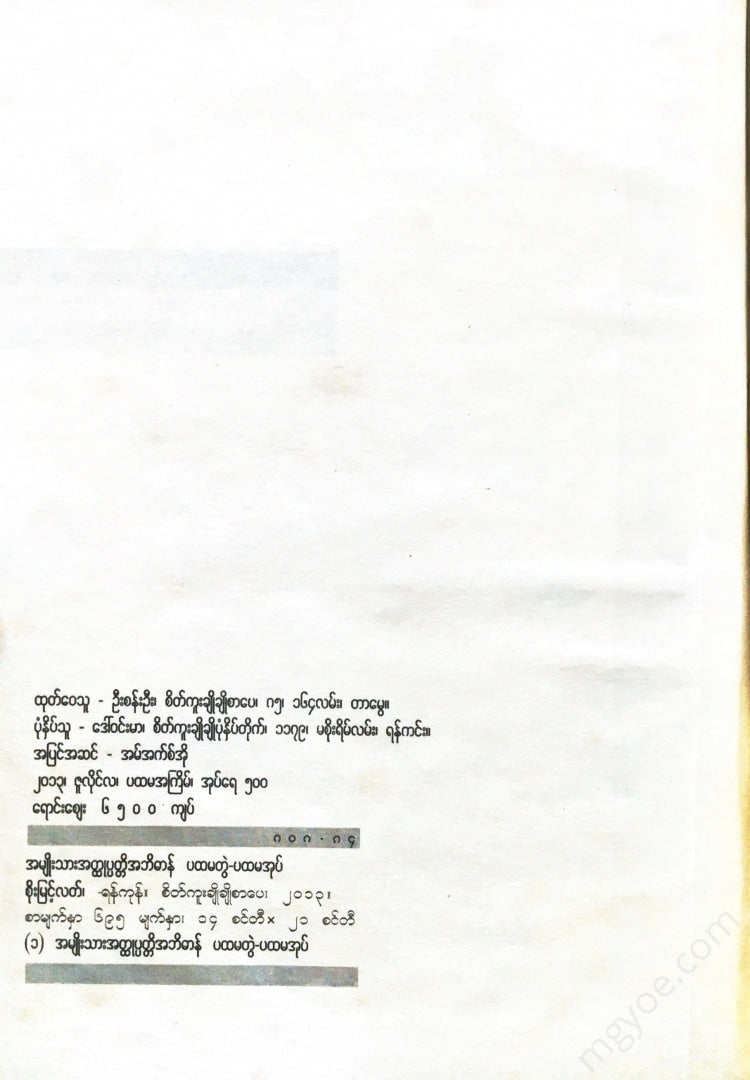 ထုတ်ဝေသူ - ဦးစန်းဦး၊ စိတ်ကူးချိုချိုစာပေ၊ ဂ၅၊ ၁၆၄လမ်း၊ တာမွေ။
ပုံနှိပ်သူ - ဒေါ်ဝင်းမာ၊ စိတ်ကူးချိုချိုပုံနှိပ်တိုက်၊ ၁၁၇၉၊ မစိုးရိမ်လမ်း၊ ရန်ကင်း။
အပြင်အဆင် - အမ်အက်စ်အို
၂၀၁၃၊ ဇူလိုင်လ၊ ပထမအကြိမ်၊ အုပ်ရေ ၅၀၀
ရောင်းဈေး ၆၅၀၀ ကျပ်
၈၀၈ . ၈၄
အမျိုးသားအတ္ထုပ္ပတ္တိအဘိဓာန် ပထမတွဲ-ပထမအုပ်
စိုးမြင့်လတ်၊ -ရန်ကုန်။ စိတ်ကူးချိုချိုစာပေ၊ ၂၀၁၃။
စာမျက်နှာ ၆၉၅ မျက်နှာ၊ ၁၄ စင်တီ× ၂၁ စင်တီ
(၁) အမျိုးသားအတ္ထုပ္ပတ္တိအဘိဓာန် ပထမတွဲ-ပထမအုပ်
mgyoe.com